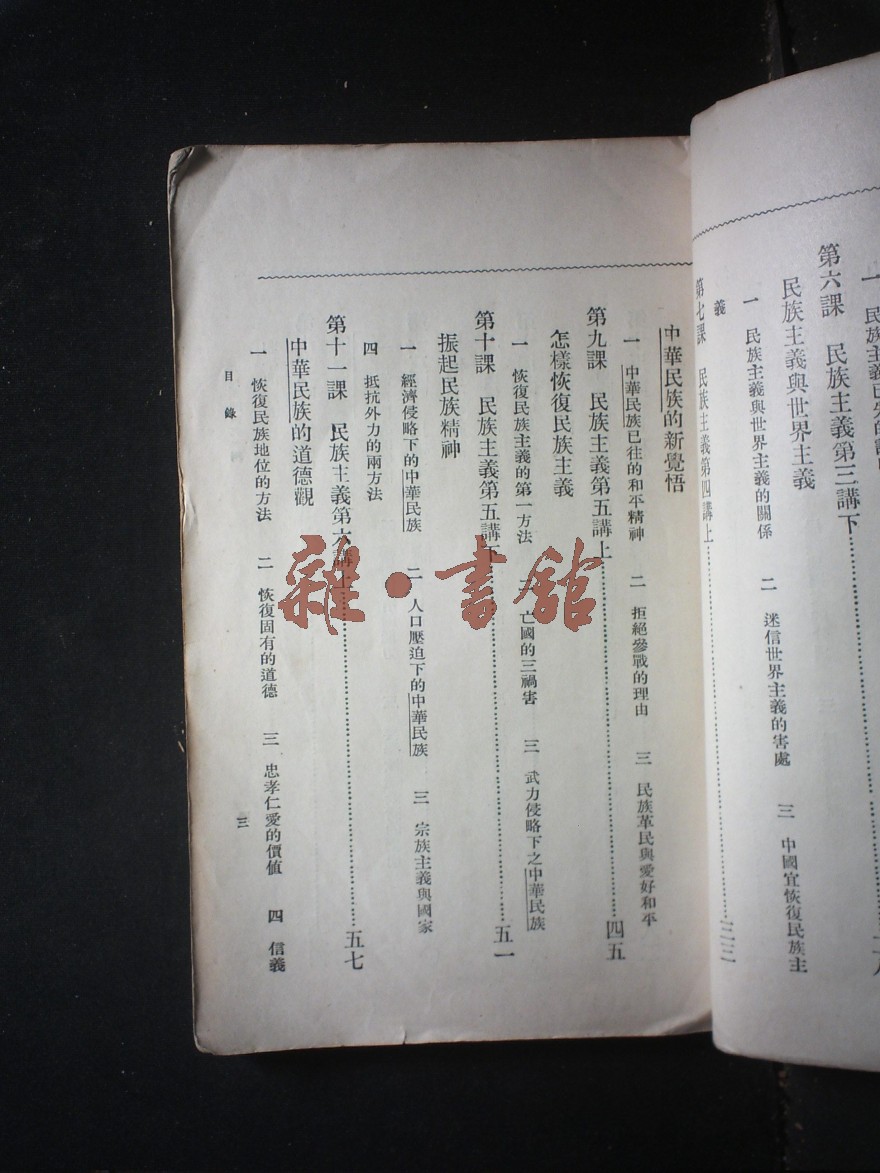 第六課　民族主義第三講下
民族主義與世界主義
一　民族主義與世界主義的關係　二　迷信世界主義的害處　三　中國宜恢復民族主
義
第七課　民族主義第四講上　三三
中華民族的新覺悟
一　中華民族已往的和平精神　二　拒絕參戰的理由　三　民族革民與愛好和平
第九課　民族主義第五講上　四五
怎樣恢復民族主義
一　恢復民族主義的第一方法　二　亡國的三禍害　三　武力侵略下之中華民族
第十課　民族主義第五講下　五一
振起民族精神
一　經濟侵略下的中華民族　二　人口壓迫下的中華民族　三　宗族主義與國家
四　抵抗外力的兩方法
第十一課　民族主義第六講上　五七
中華民族的道德觀
一　恢復民族地位的方法　二　恢復固有的道德　三　忠孝仁愛的價值　四　信義
目錄
三
雜·書館